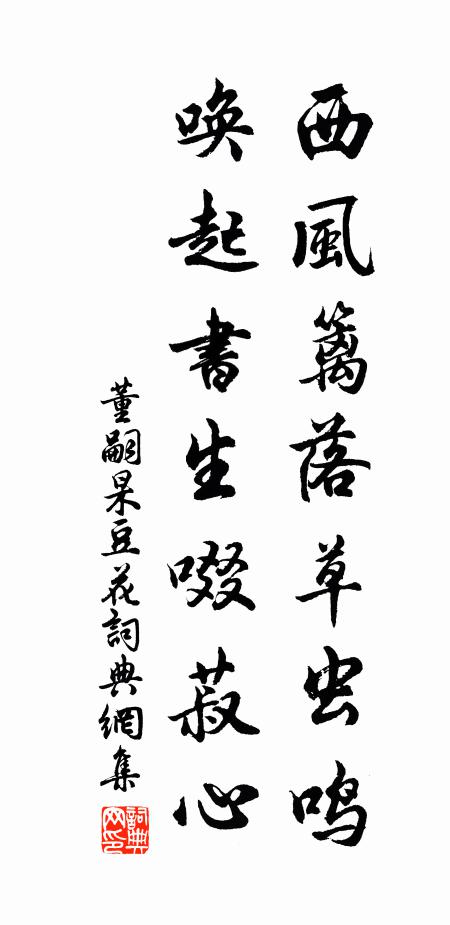 西風籬落草虫鸣
唤起書生啜菽心
董嗣杲豆花詞典網集
詞典网印